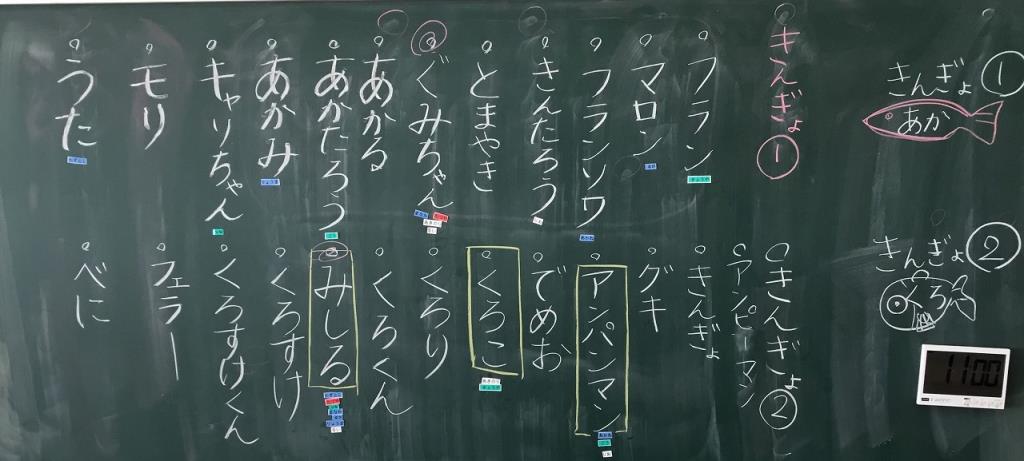 きんぎょ ①
あか
きんぎょ ②
くろ
11:00
きんぎょ ①
フラン
マロン
フランソワ
きんたろう
とまやき
ぐみちゃん
あかる
あかたろう
あかみ
キャリちゃん
モリ
うた
きんぎょ ②
アンピーマン
きんぎょ
グキ
アンパンマン
でめお
くろこ
くろり
くろくん
みしる
くろすけ
くろすけくん
フェラー
べに